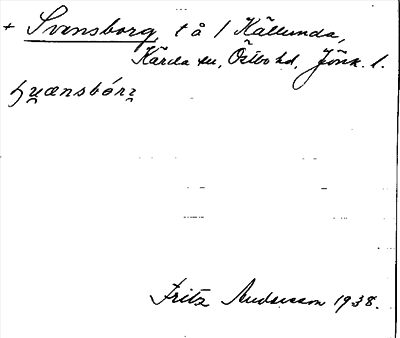 + Svensborg, t å 1 Källunda,
Kärda sn, Östbo hd, Jönk. l.
Fritz Andersson 1938.